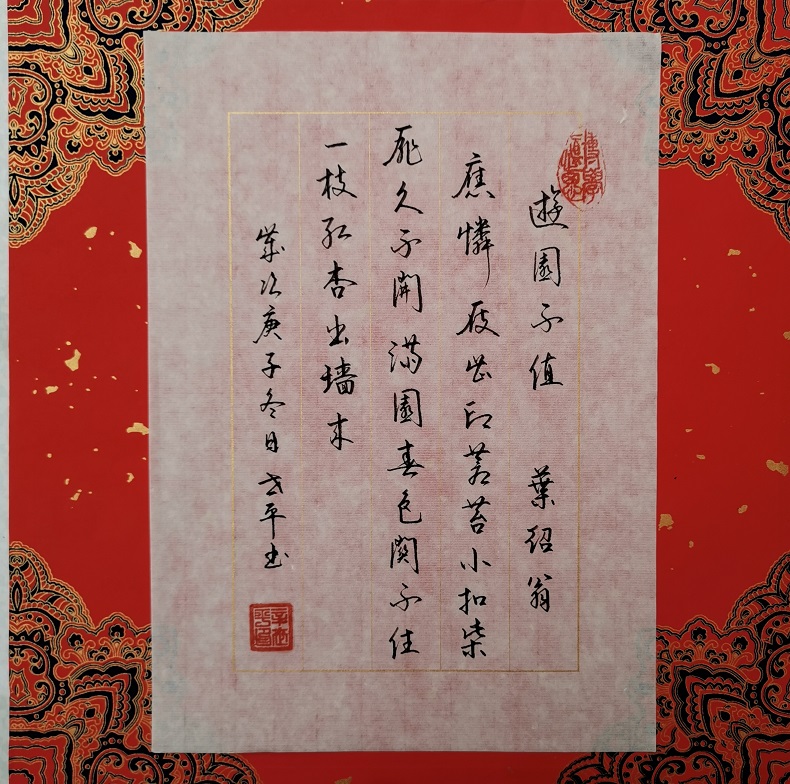 遊園不值 葉紹翁
應憐屐齒印蒼苔小扣柴
扉久不開滿園春色關不住
一枝紅杏出墻来
歲次庚子冬日世平书